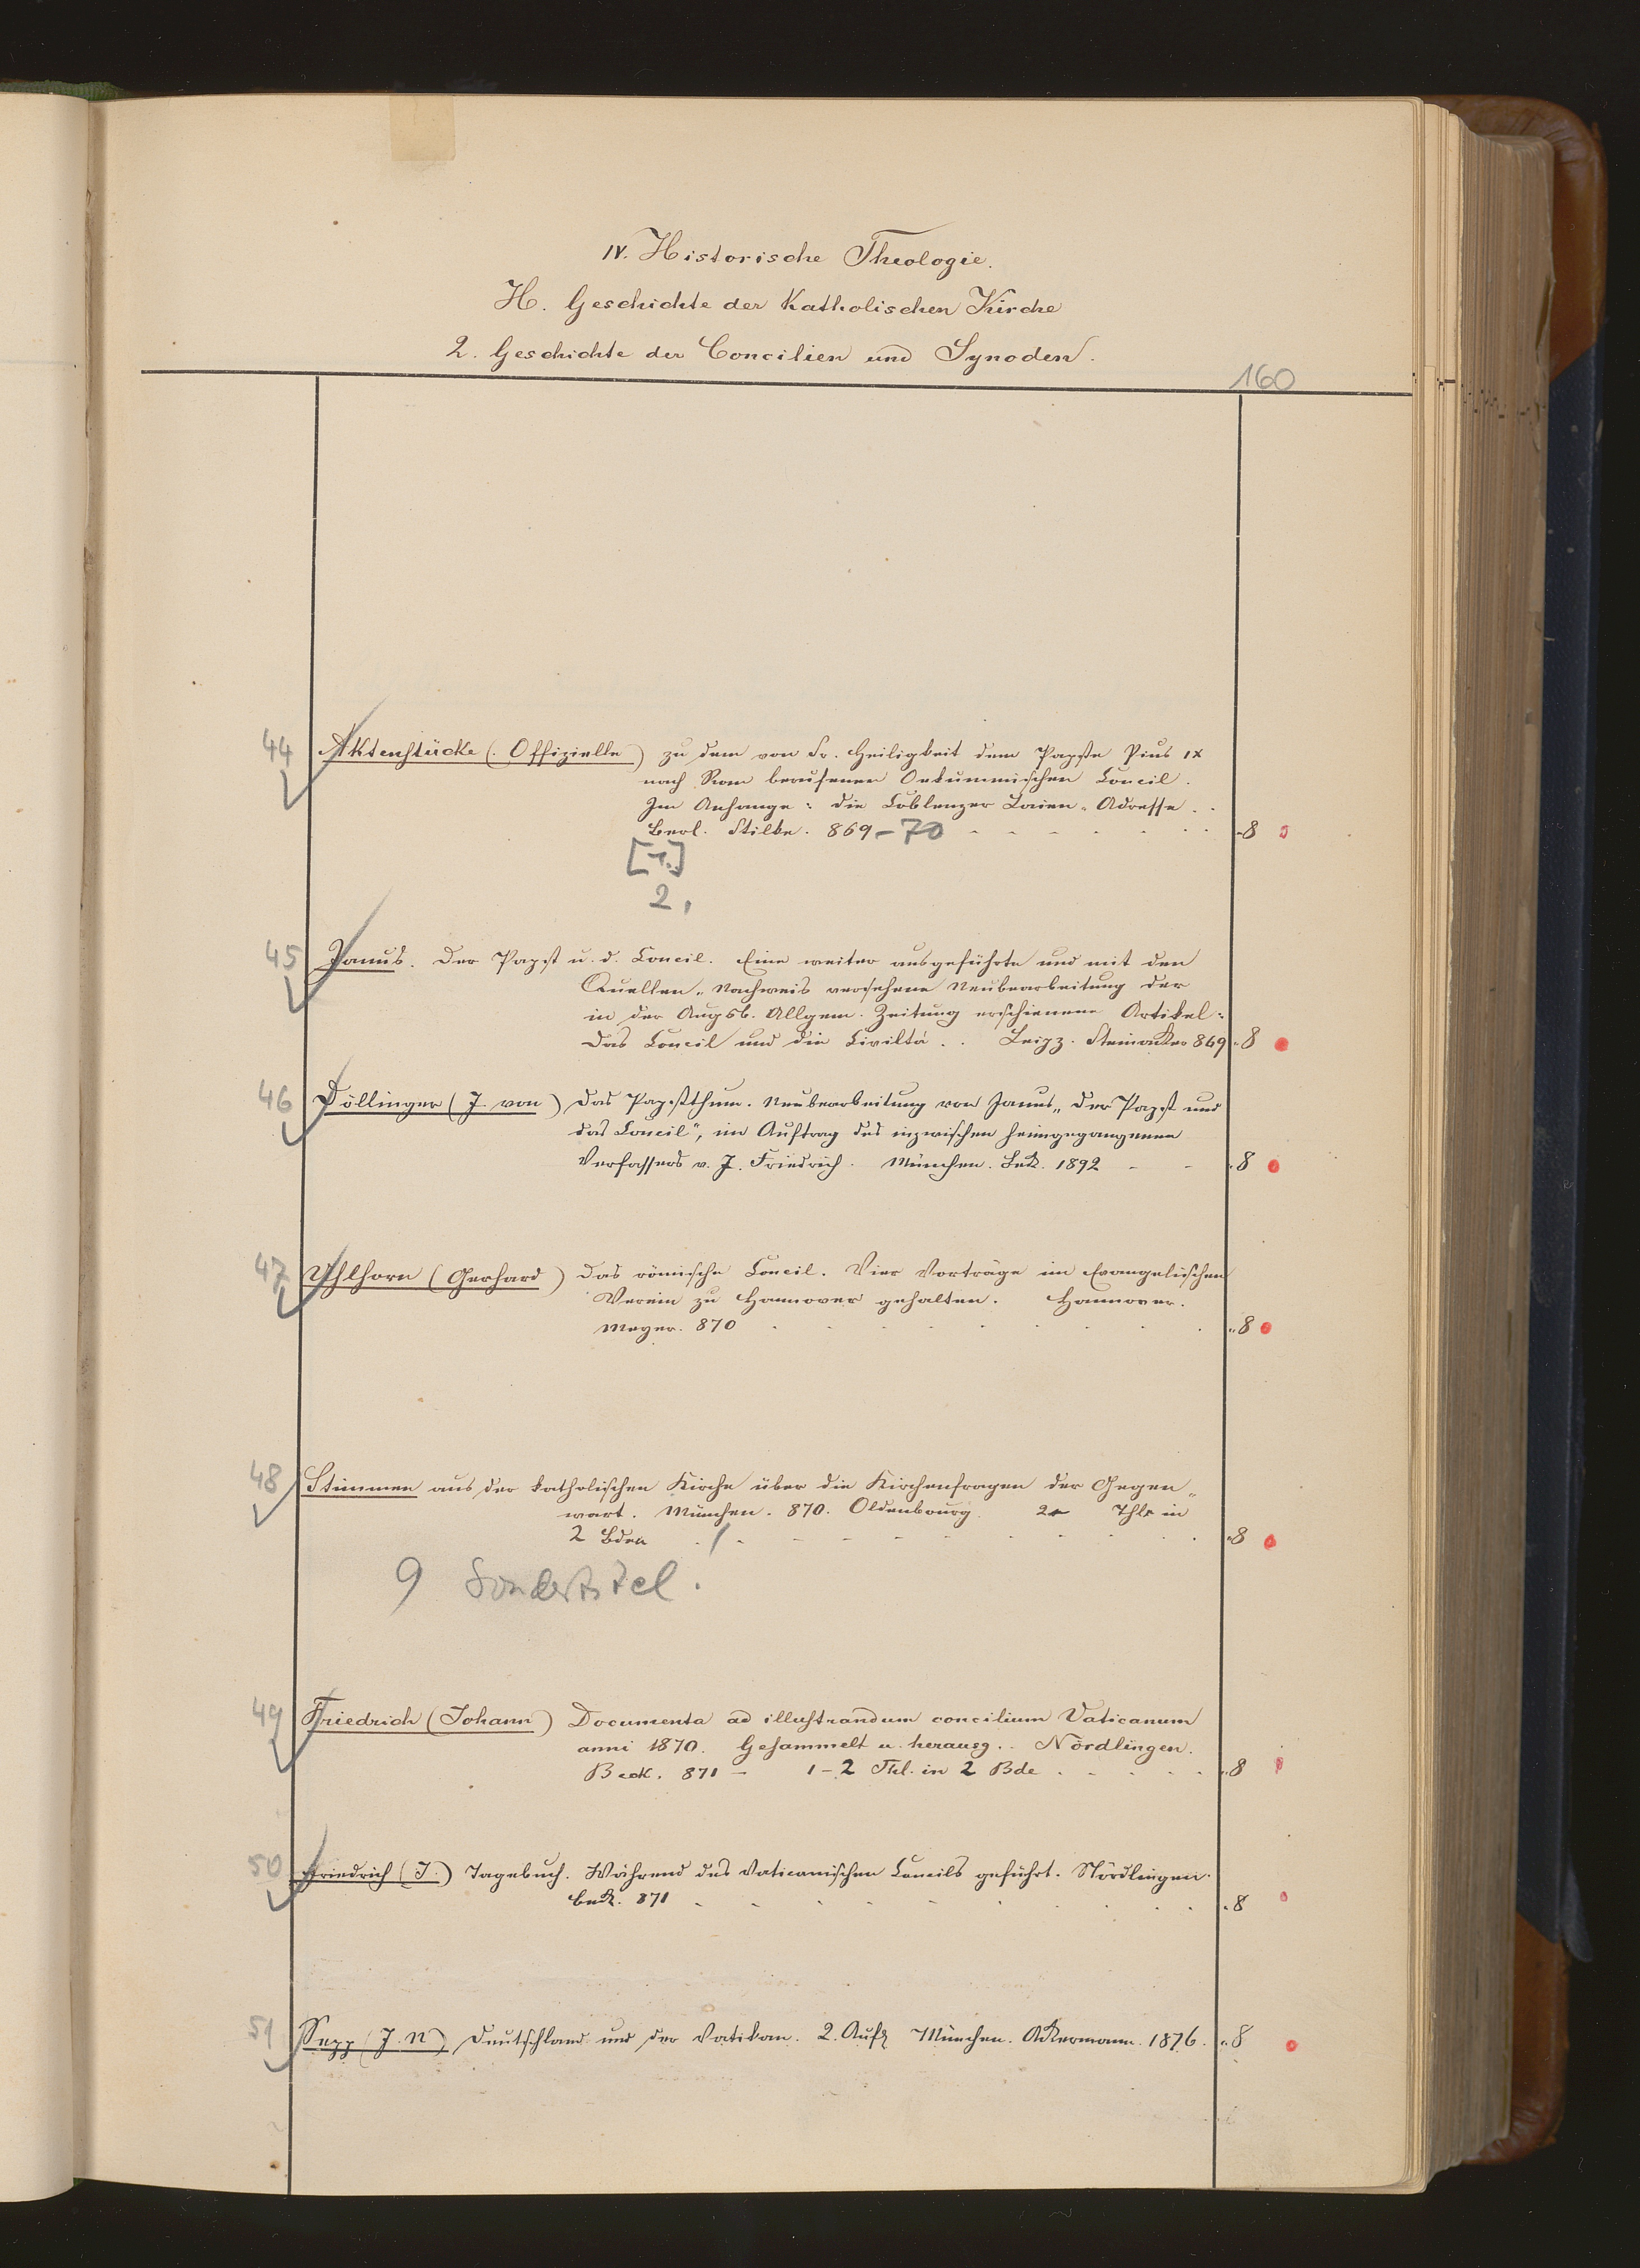 IV. Historische Theologie.
H. Geschichte der Katholischen Kirche
2. Geschichte der Concilien und Synoden.
160
44 Aktenstücke (Offizielle) zu dem von Sr. Heiligkeit dem Papste Pius IX
nach Rom berufenen Oekumenischen Concil.
Im Anhange: die Coblenzer Laien-Adresse.
Berl. Stilke. 869-70 8
[1.]
2.
45 Janus. Der Papst u. d. Concil. Eine weiter ausgeführte und mit den
Quellen-Nachweis versehene Neubearbeitung der
in der Augsb. Allgem. Zeitung erschienene Artikel:
Das Concil und die Civiltà. Leipz. Steinacker 869 8
46 Döllinger (J. von) Das Papstthum. Neubearbeitung von Janus „Der Papst und
das Concil“, im Auftrag des inzwischen heimgegangenen
Verfassers v. J. Friedrich. München. Beck. 1892 8
47 Uhlhorn (Gerhard) Das römische Concil. Vier Vorträge im Evangelischen
Verein zu Hannover gehalten. Hannover.
Meyer. 870 8
48 Stimmen aus der katholischen Kirche über die Kirchenfragen der Gegen-
wart. München. 870. Oldenbourg. 2 Thle in
2 Bden 8
9 Sondertitel.
49 Friedrich (Johann) Documenta ad illustrandum concilium Vaticanum
anni 1870. Gesammelt u. herausg.. Nördlingen.
Beck. 871 - 1-2 Thl. in 2 Bde 8
50 Friedrich (J.) Tagebuch. Während des Vaticanischen Concils geführt. Nördlingen.
Beck. 871 8
51 Sepp (J. N) Deutschland und der Vatikan. 2. Aufl. München. Ackermann. 1876. 8